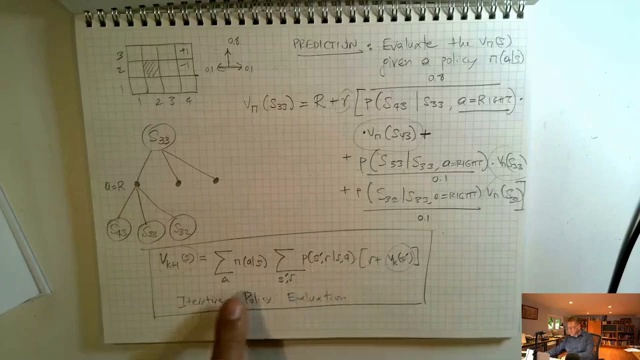 PREDICTION : Evaluate the Vπ(s)
given a policy π(a|s)
3
2
1
1 2 3 4
+1
-1
0.8
0.1 0.1
0.8
Vπ(S33) = R + γ [ p(S43 | S33, a=RIGHT) ·
· Vπ(S43) +
+ p(S33 | S33, a=RIGHT) · Vπ(S33)
0.1
+ p(S32 | S33, a=RIGHT) Vπ(S32) ]
0.1
S33
a=R
S43 S33 S32
Vk+1(s) = ∑a π(a|s) ∑s',r p(s',r|s,a) [ r + Vk(s') ]
Iterative Policy Evaluation